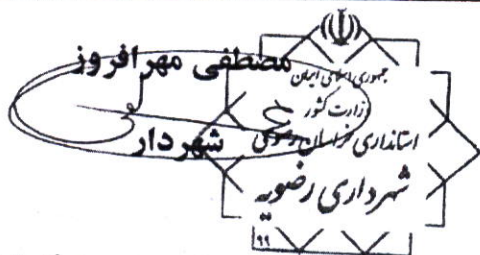 مصطفی مهرافروز
شهردار
جمهوری اسلامی ایران
وزارت کشور
استانداری خراسان رضوی
شهرداری رضویه
۹۹